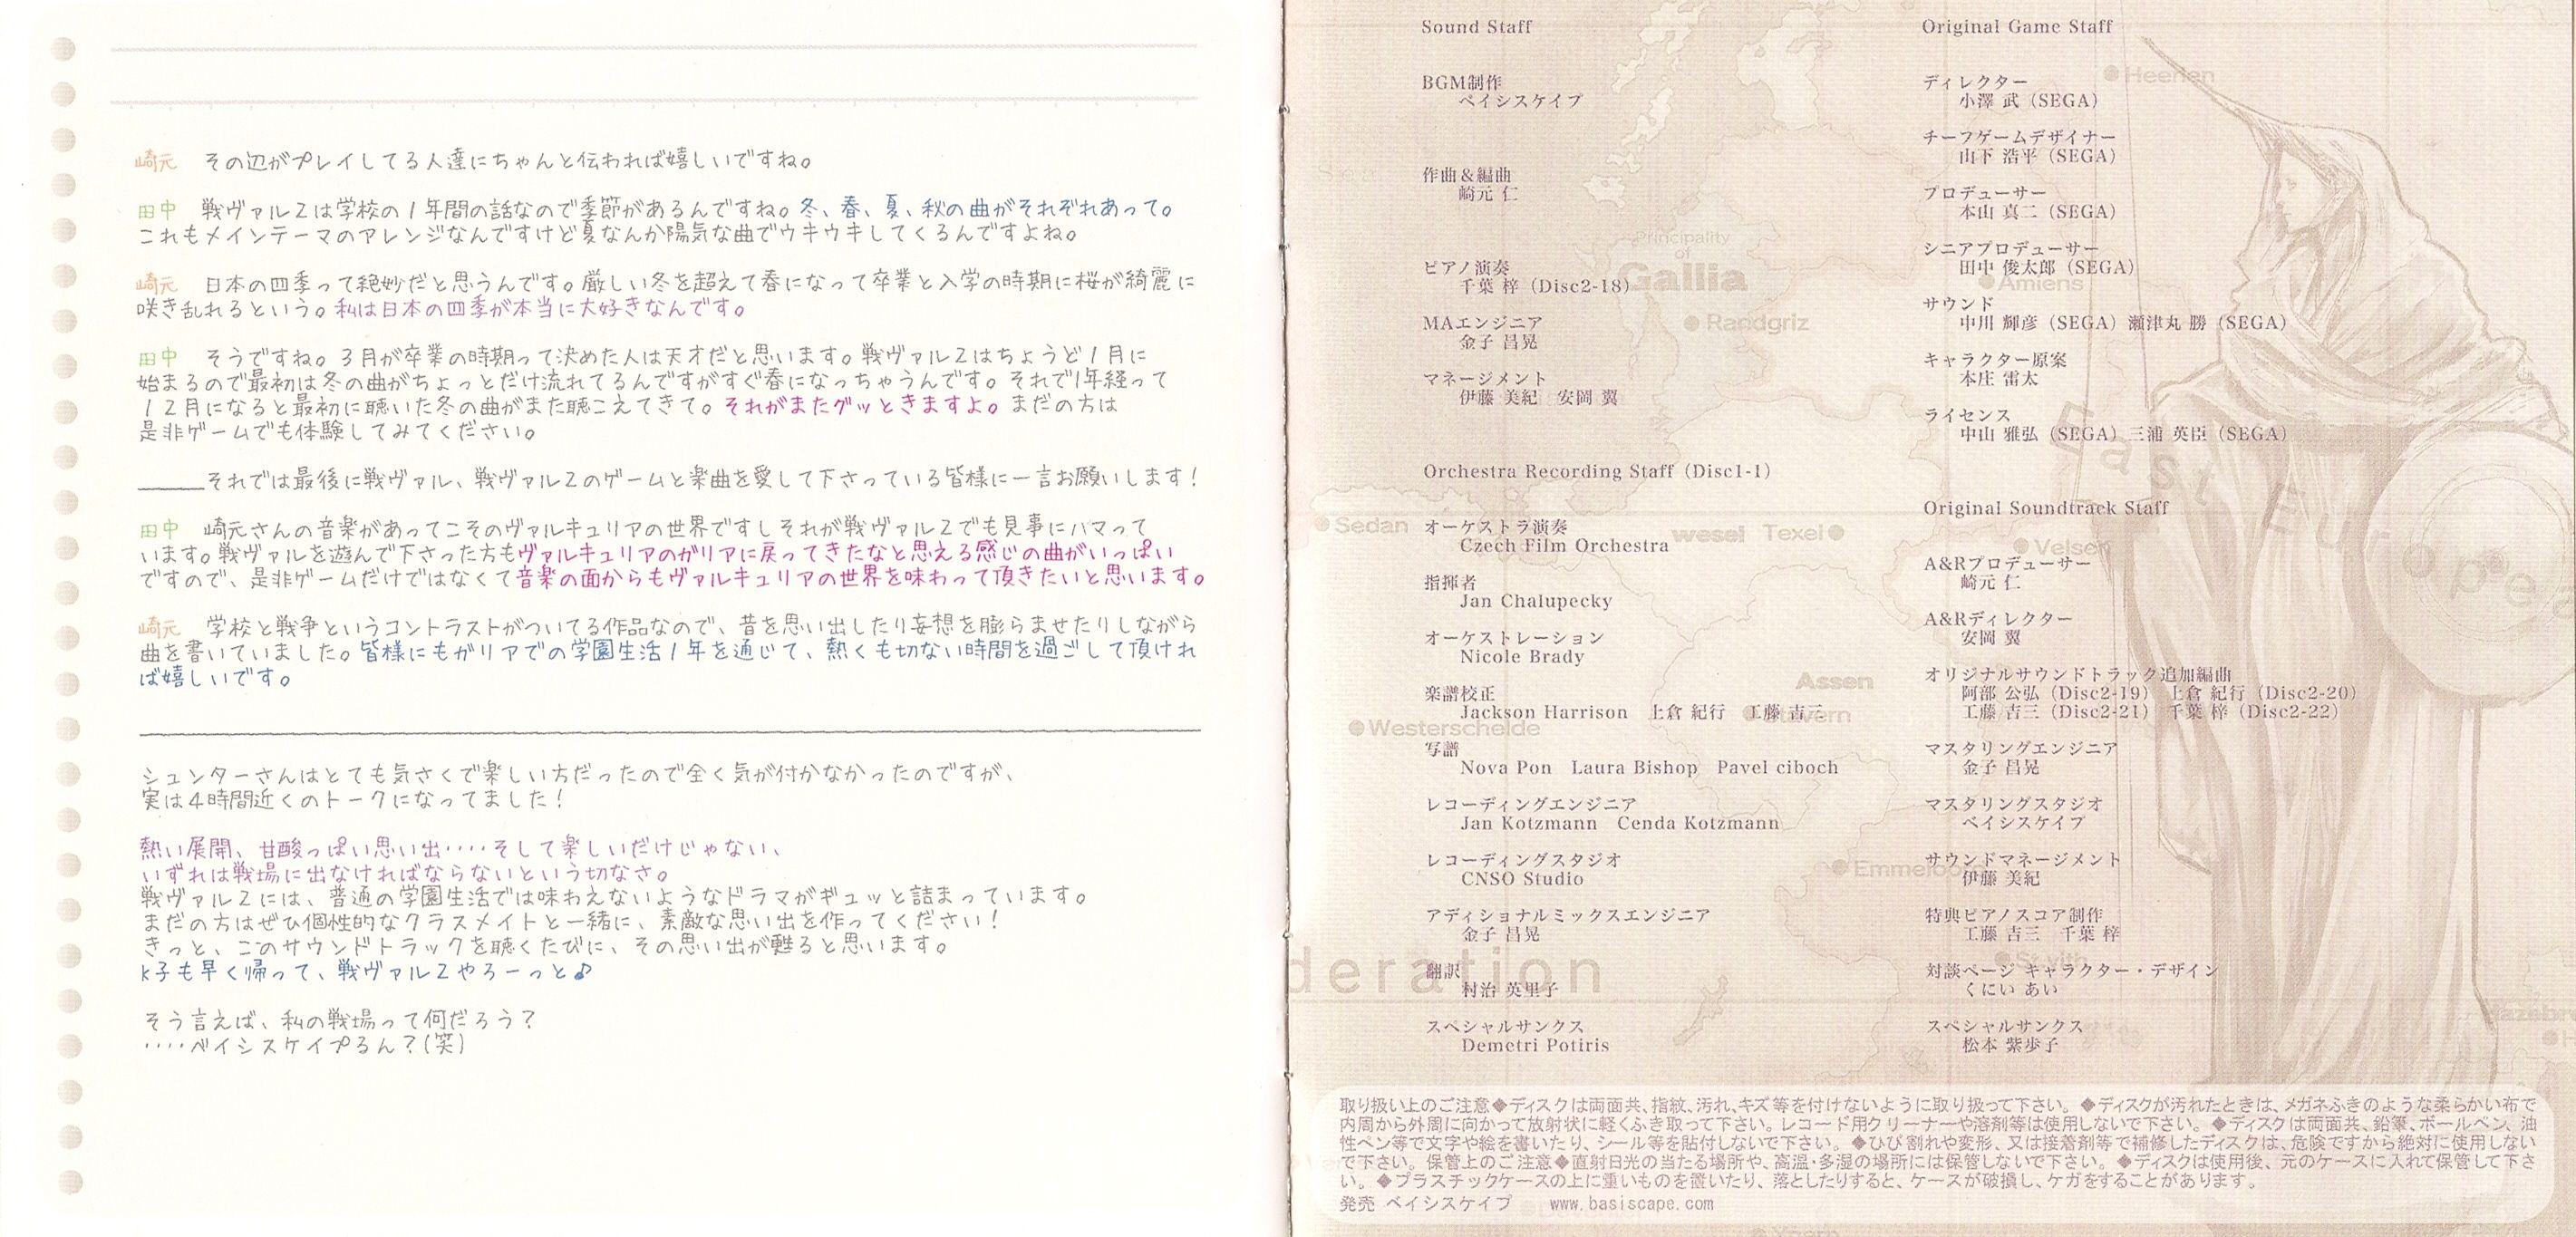 崎元　その辺がプレイしてる人達にちゃんと伝われば嬉しいですね。
田中　戦ヴァル2は学校の1年間の話なので季節があるんですね。冬、春、夏、秋の曲がそれぞれあって。
これもメインテーマのアレンジなんですけど夏なんか陽気な曲でウキウキしてくるんですよね。
崎元　日本の四季って絶妙だと思うんです。厳しい冬を超えて春になって卒業と入学の時期に桜が綺麗に
咲き乱れるという。私は日本の四季が本当に大好きなんです。
田中　そうですね。3月が卒業の時期って決めた人は天才だと思います。戦ヴァル2はちょうど1月に
始まるので最初は冬の曲がちょっとだけ流れてるんですがすぐ春になっちゃうんです。それで1年経って
12月になると最初に聴いた冬の曲がまた聴こえてきて。それがまたグッときますよ。まだの方は
是非ゲームでも体験してみてください。
＿＿＿それでは最後に戦ヴァル、戦ヴァル2のゲームと楽曲を愛して下さっている皆様に一言お願いします!
田中　崎元さんの音楽があってこそのヴァルキュリアの世界ですしそれが戦ヴァル2でも見事にハマって
います。戦ヴァルを遊んで下さった方もヴァルキュリアのガリアに戻ってきたなと思える感じの曲がいっぱい
ですので、是非ゲームだけではなくて音楽の面からもヴァルキュリアの世界を味わって頂きたいと思います。
崎元　学校と戦争というコントラストがついてる作品なので、昔を思い出したり妄想を膨らませたりしながら
曲を書いていました。皆様にもガリアでの学園生活1年を通じて、熱くも切ない時間を過ごして頂けれ
ば嬉しいです。
シュンターさんはとても気さくで楽しい方だったので全く気が付かなかったのですが、
実は4時間近くのトークになってました!
熱い展開、甘酸っぱい思い出‥‥そして楽しいだけじゃない、
いずれは戦場に出なければならないという切なさ。
戦ヴァル2には、普通の学園生活では味わえないようなドラマがギュッと詰まっています。
まだの方はぜひ個性的なクラスメイトと一緒に、素敵な思い出を作ってください!
きっと、このサウンドトラックを聴くたびに、その思い出が甦ると思います。
K子も早く帰って、戦ヴァル2やろーっと♪
そう言えば、私の戦場って何だろう?
‥‥ベイシスケイプるん?(笑)
Sound Staff
BGM制作
ベイシスケイプ
作曲&編曲
崎元 仁
ピアノ演奏
千葉 梓（Disc2-18）
MAエンジニア
金子 昌晃
マネージメント
伊藤 美紀　安岡 翼
Orchestra Recording Staff（Disc1-1）
オーケストラ演奏
Czech Film Orchestra
指揮者
Jan Chalupecky
オーケストレーション
Nicole Brady
楽譜校正
Jackson Harrison　上倉 紀行　工藤 吉三
写譜
Nova Pon　Laura Bishop　Pavel ciboch
レコーディングエンジニア
Jan Kotzmann　Cenda Kotzmann
レコーディングスタジオ
CNSO Studio
アディショナルミックスエンジニア
金子 昌晃
翻訳
村治 英里子
スペシャルサンクス
Demetri Potiris
Original Game Staff
ディレクター
小澤 武（SEGA）
チーフゲームデザイナー
山下 浩平（SEGA）
プロデューサー
本山 真二（SEGA）
シニアプロデューサー
田中 俊太郎（SEGA）
サウンド
中川 輝彦（SEGA）瀬津丸 勝（SEGA）
キャラクター原案
本庄 雷太
ライセンス
中山 雅弘（SEGA）三浦 英臣（SEGA）
Original Soundtrack Staff
A&Rプロデューサー
崎元 仁
A&Rディレクター
安岡 翼
オリジナルサウンドトラック追加編曲
阿部 公弘（Disc2-19）　上倉 紀行（Disc2-20）
工藤 吉三（Disc2-21）　千葉 梓（Disc2-22）
マスタリングエンジニア
金子 昌晃
マスタリングスタジオ
ベイシスケイプ
サウンドマネージメント
伊藤 美紀
特典ピアノスコア制作
工藤 吉三　千葉 梓
対談ページ キャラクター・デザイン
くにい あい
スペシャルサンクス
松本 紫歩子
Heerlen
Principality
of
Gallia
Amiens
Randgriz
East Europea
Sedan
wesel
Texel
Velsen
Assen
Stavern
Westerschelde
Emmeloord
St.vith
deration
取り扱い上のご注意◆ディスクは両面共、指紋、汚れ、キズ等を付けないように取り扱って下さい。◆ディスクが汚れたときは、メガネふきのような柔らかい布で
内周から外周に向かって放射状に軽くふき取って下さい。レコード用クリーナーや溶剤等は使用しないで下さい。◆ディスクは両面共、鉛筆、ボールペン、油
性ペン等で文字や絵を書いたり、シール等を貼付しないで下さい。◆ひび割れや変形、又は接着剤等で補修したディスクは、危険ですから絶対に使用しない
で下さい。保管上のご注意◆直射日光の当たる場所や、高温・多湿の場所には保管しないで下さい。◆ディスクは使用後、元のケースに入れて保管して下さ
い。◆プラスチックケースの上に重いものを置いたり、落としたりすると、ケースが破損し、ケガをすることがあります。
発売 ベイシスケイプ　www.basiscape.com